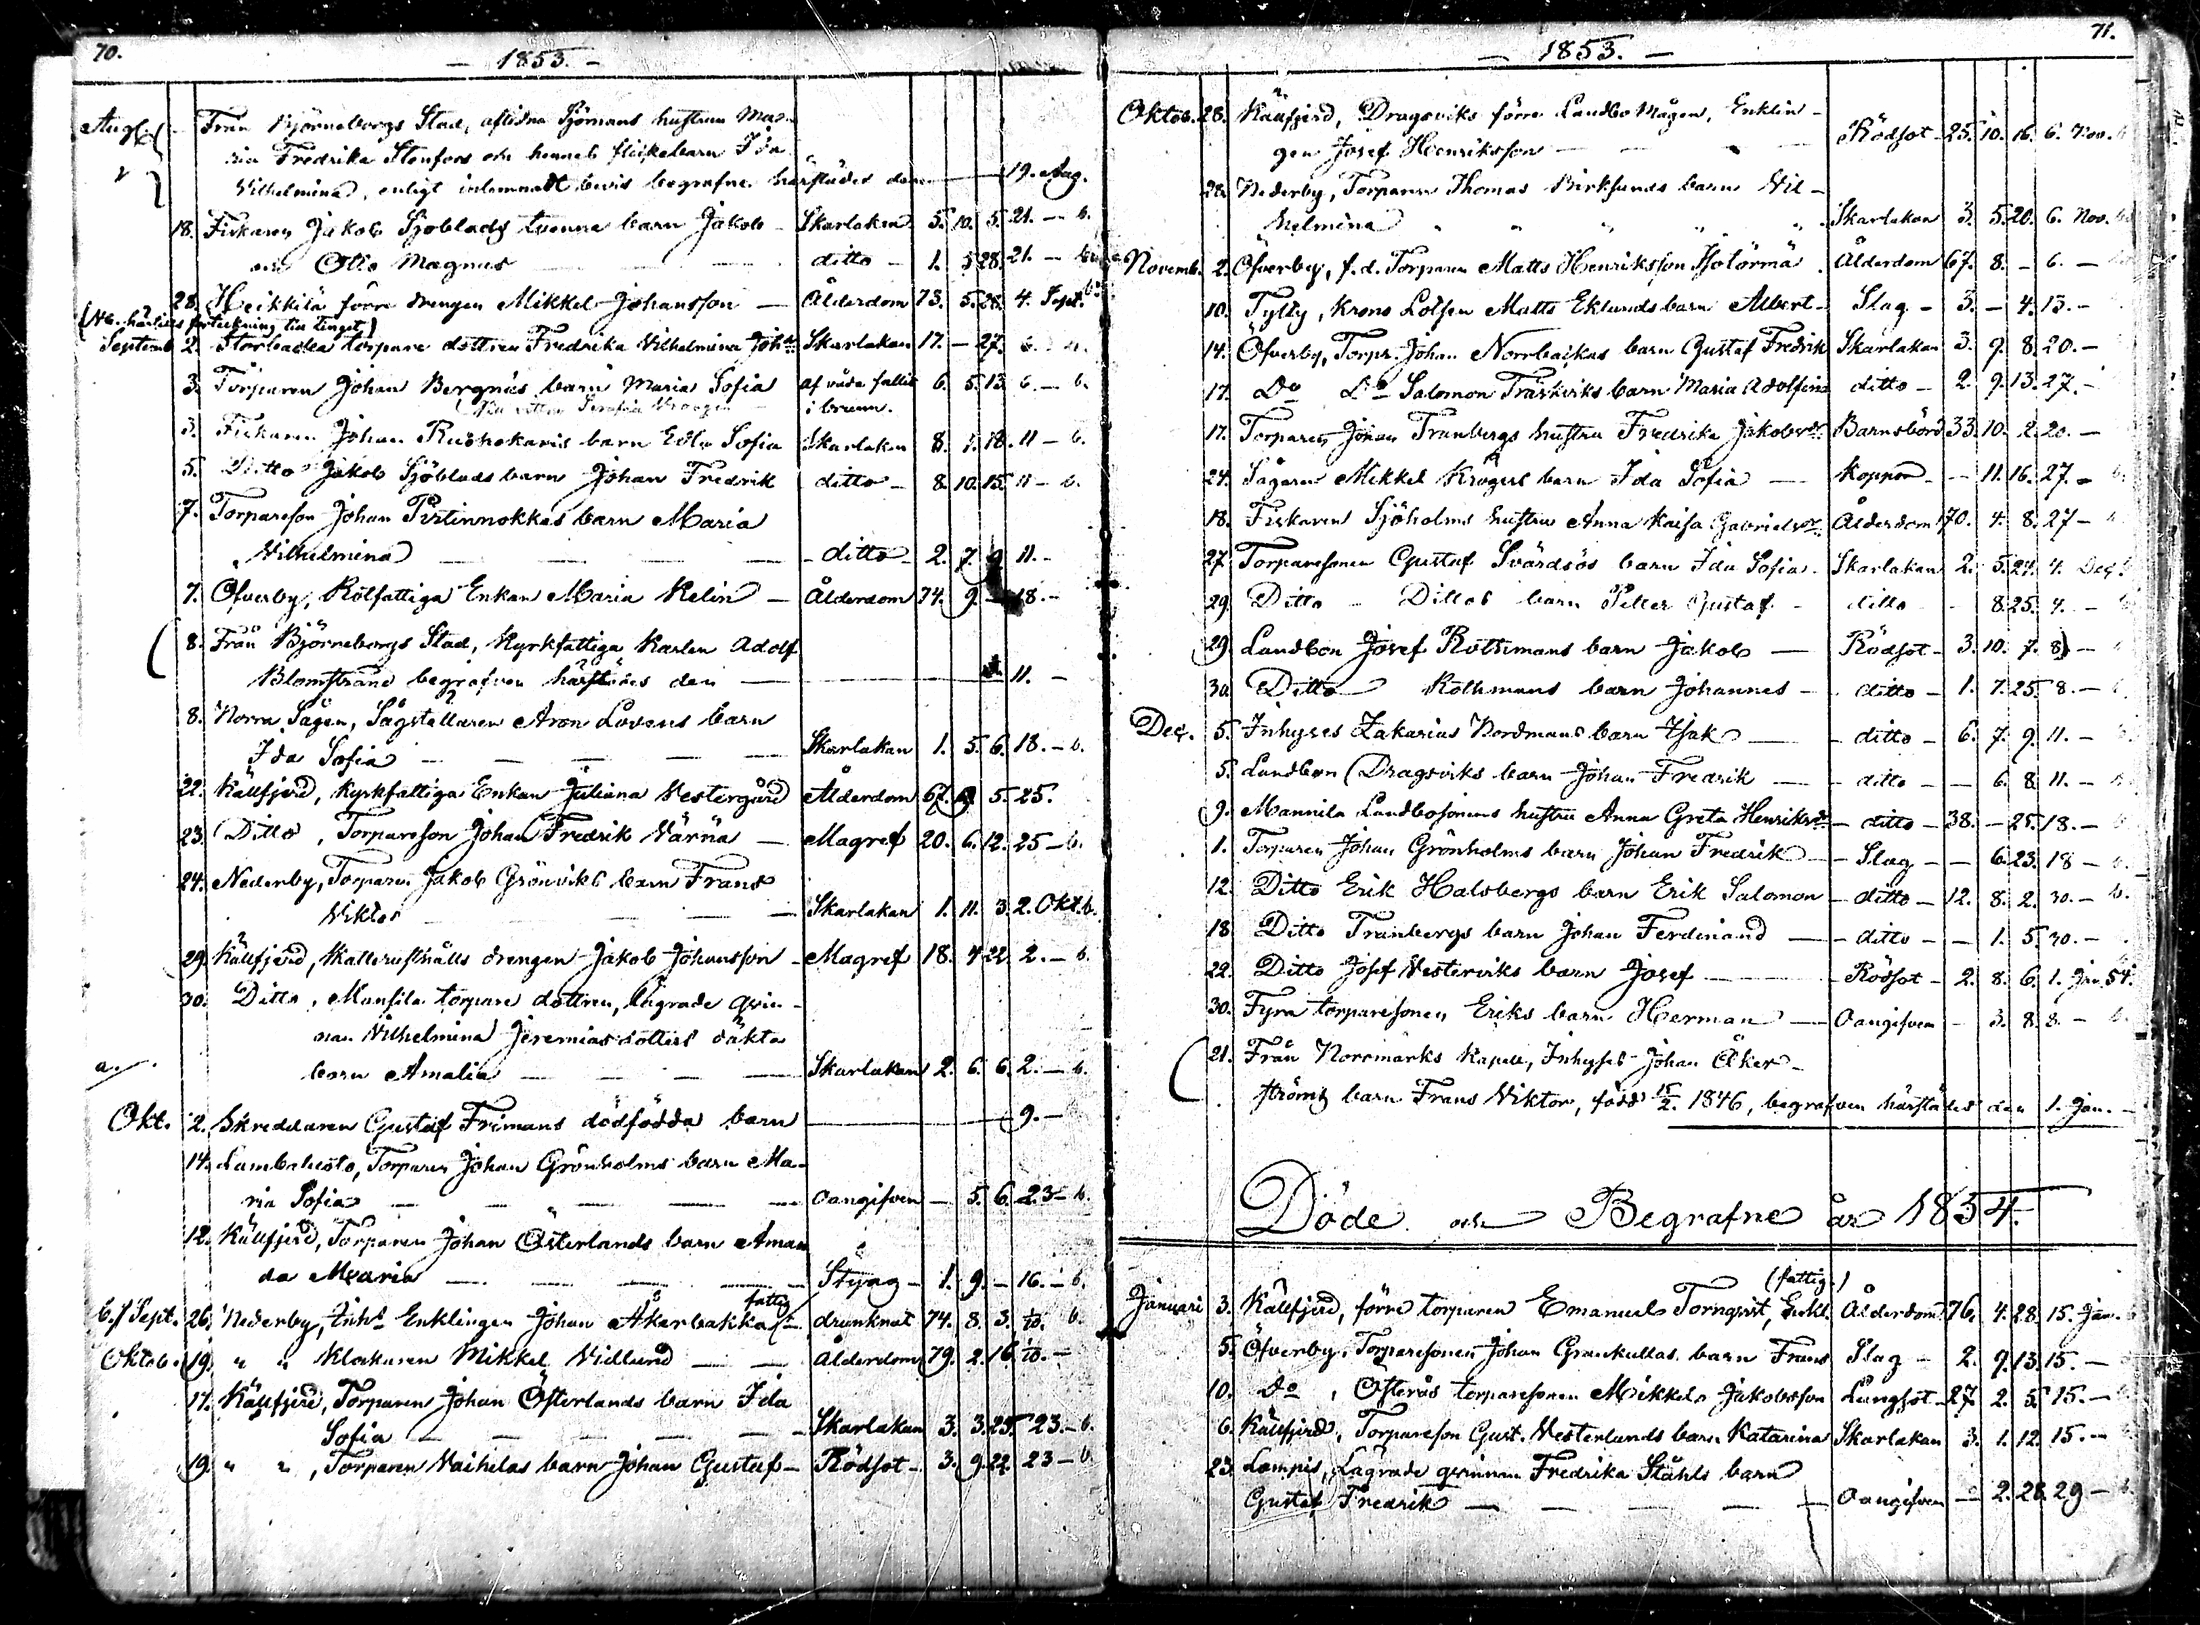 70.
— 1853. —
Aug. Från Björneborgs Stad, aflidna Sjömans hustrun Ma-
ria Fredrika Stenfors och hennes flickebarn Ida
Vilhelmina, enligt inlemnadt bevis begrafne härstädes den — 19. Aug.
18. Fiskaren Jakob Sjöblads tvenne barn Jakob — Skarlakan 5. 10. 5. 21. — b.
och Otto Magnus — ditto — 1. 5. 28. 21. —
28. Heikkilä förre drengen Mikkel Johansson — Ålderdom 73. 5. 28. 4. Sept.
förteckning till Tinget)
Septemb. 2. Storbacka torpare dottren Fredrika Vilhelmina Joh Skarlakan 17. — 27. 6.
3. Torparen Johan Bergnäs barn Maria Sofia af våda fallit 6. 5. 13. 6. — b.
i brunn.
3. Fiskaren Johan Ruohokaris barn Edla Sofia Skarlakan 8. 1. 18. 11 — b.
5. Ditto Jakob Sjöblads barn Johan Fredrik ditto — 8. 10. 15. 11 — b.
7. Torpareson Johan Pirtinnokkas barn Maria
Vilhelmina — ditto — 2. 7. 9. 11. —
7. Öfverby, Rotfattiga Enkan Maria Relin — Ålderdom 74. 9. — 18. —
8. Från Björneborgs Stad, Kyrkfattiga Karlen Adolf
Blomstrand begrafven härstädes den — 11. —
8. Norra Sågen, Sågställaren Aron Lovens barn
Ida Sofia — Skarlakan 1. 5. 6. 18. — b.
22. Källfjerd, Kyrkfattiga Enkan Juliana Vestergård Ålderdom 67. 5. 25.
23. Ditto, Torpareson Johan Fredrik Värnä — Magref 20. 6. 12. 25 — b.
24. Nederby, Torparen Jakob Grönviks barn Frans
Viktor — Skarlakan 1. 11. 3. 2. Okt. b.
29. Källfjerd, drengen Jakob Johansson — Magref 18. 4. 22. 2. — b.
30. Ditto, torpare dottren, lägrade qvin-
nan Vilhelmina Jeremiasdotters oäkta
a. barn Amalia — Skarlakan 2. 6. 6. 2. — b.
Okt. 2. Skreddaren Gustaf Frimans dödfödda barn — 9. —
14. Lambaluoto, Torparen Johan Grönholms barn Ma-
ria Sofia — Oangifven — 5. 6. 23 — b.
12. Källfjerd, Torparen Johan Österlands barn Aman
da Maria — 1. 9. — 16. — b.
Sept. 26. Nederby, Inhs Enklingen Johan Åkerbakka (fattig drunknat 74. 8. 3. b.
Oktob. 19. " " Klockaren Mikkel Vidlund — Ålderdom 79. 2. 16.
17. Källfjerd, Torparen Johan Österlands barn Ida
Sofia — Skarlakan 3. 3. 25. 23. — b.
19. " " , Torparen Vaihelas barn Johan Gustaf — Rödsot — 3. 9. 22. 23 — b.
71.
— 1853. —
Oktob. 28. Källfjerd, Dragsviks förre Landbo Mågen, Enklin-
gen Josef Henriksson — Rödsot — 25. 10. 16. 6. Nov.
28. Nederby, Torparen Thomas Birklunds barn Vil-
helmina Skarlakan 3. 5. 20. 6. Nov.
Novemb. 2. Öfverby, f. d. Torparen Matts Henriksson Isotörmä Ålderdom 67. 8. — 6. —
10. Tyllty, Krono Lotsen Matts Eklunds barn Albert — Slag — 3. — 4. 13. —
14. Öfverby, Torpr. Johan Norrbackas barn Gustaf Fredrik Skarlakan 3. 9. 8. 20. —
17. Do Do Salomon Träskviks barn Maria Adolfina ditto — 2. 9. 13. 27. —
17. Torparen Johan Tranbergs hustru Fredrika Jakobsdr Barnsbörd 33. 10. 2. 20. —
24. Sågaren Mikkel Krögers barn Ida Sofia — Koppor — 11. 16. 27. —
18. Fiskaren Sjöholms hustru Anna Kaisa Gabrielsdr Ålderdom 70. 4. 8. 27 —
27. Torparesonen Gustaf Svärdsös barn Ida Sofia — Skarlakan 2. 5. 24. 4. Dec.
29. Ditto — Dittos barn Petter Gustaf — ditto — 8. 25. 4. —
29. Landbon Josef Rothmans barn Jakob — Rödsot — 3. 10. 7. 8. —
30. Ditto Rothmans barn Johannes — ditto — 1. 7. 25. 8. —
Dec. 5. Inhyses Zakarias Nordmans barn Isak — ditto — 6. 7. 9. 11. —
5. Landbon Dragsviks barn Johan Fredrik — ditto — 6. 8. 11. —
9. Mannila Landbosonens hustru Anna Greta Henriksdr — ditto — 38. — 25. 18. —
1. Torparen Johan Grönholms barn Johan Fredrik — Slag — 6. 23. 18 —
12. Ditto Erik Halsbergs barn Erik Salomon — ditto — 12. 8. 2. 30. — b.
18. Ditto Tranbergs barn Johan Ferdinand — ditto — 1. 5. 30. —
22. Ditto Josef Vesterviks barn Josef — Rödsot — 2. 8. 6. 1. Jan. 54.
30. Fyra torparesonen Eriks barn Herman — Oangifven — 3. 8. 8. —
21. Från Norrmarks Kapell, Inhyses Johan Åker-
ströms barn Frans Viktor, född 15/2. 1846, begrafven härstädes den 1. Jan. —
Döde och Begrafne år 1854.
(fattig.)
Januari 3. Källfjerd, förre torparen Emanuel Tornqvist, Enkl. Ålderdom 76. 4. 28. 15. Jan.
5. Öfverby, Torparesonen Johan Grankullas barn Frans Slag — 2. 9. 13. 15. —
10. Do, Österås torparesonen Mikkel Jakobsson Lungsot — 27. 2. 5. 15. —
6. Källfjerd, Torpareson Gust. Vesterlunds barn Katarina Skarlakan 3. 1. 12. 15. —
23. Lampis, Lägrade qvinnan Fredrika Ståhls barn
Gustaf Fredrik — Oangifven — 2. 28. 29 —